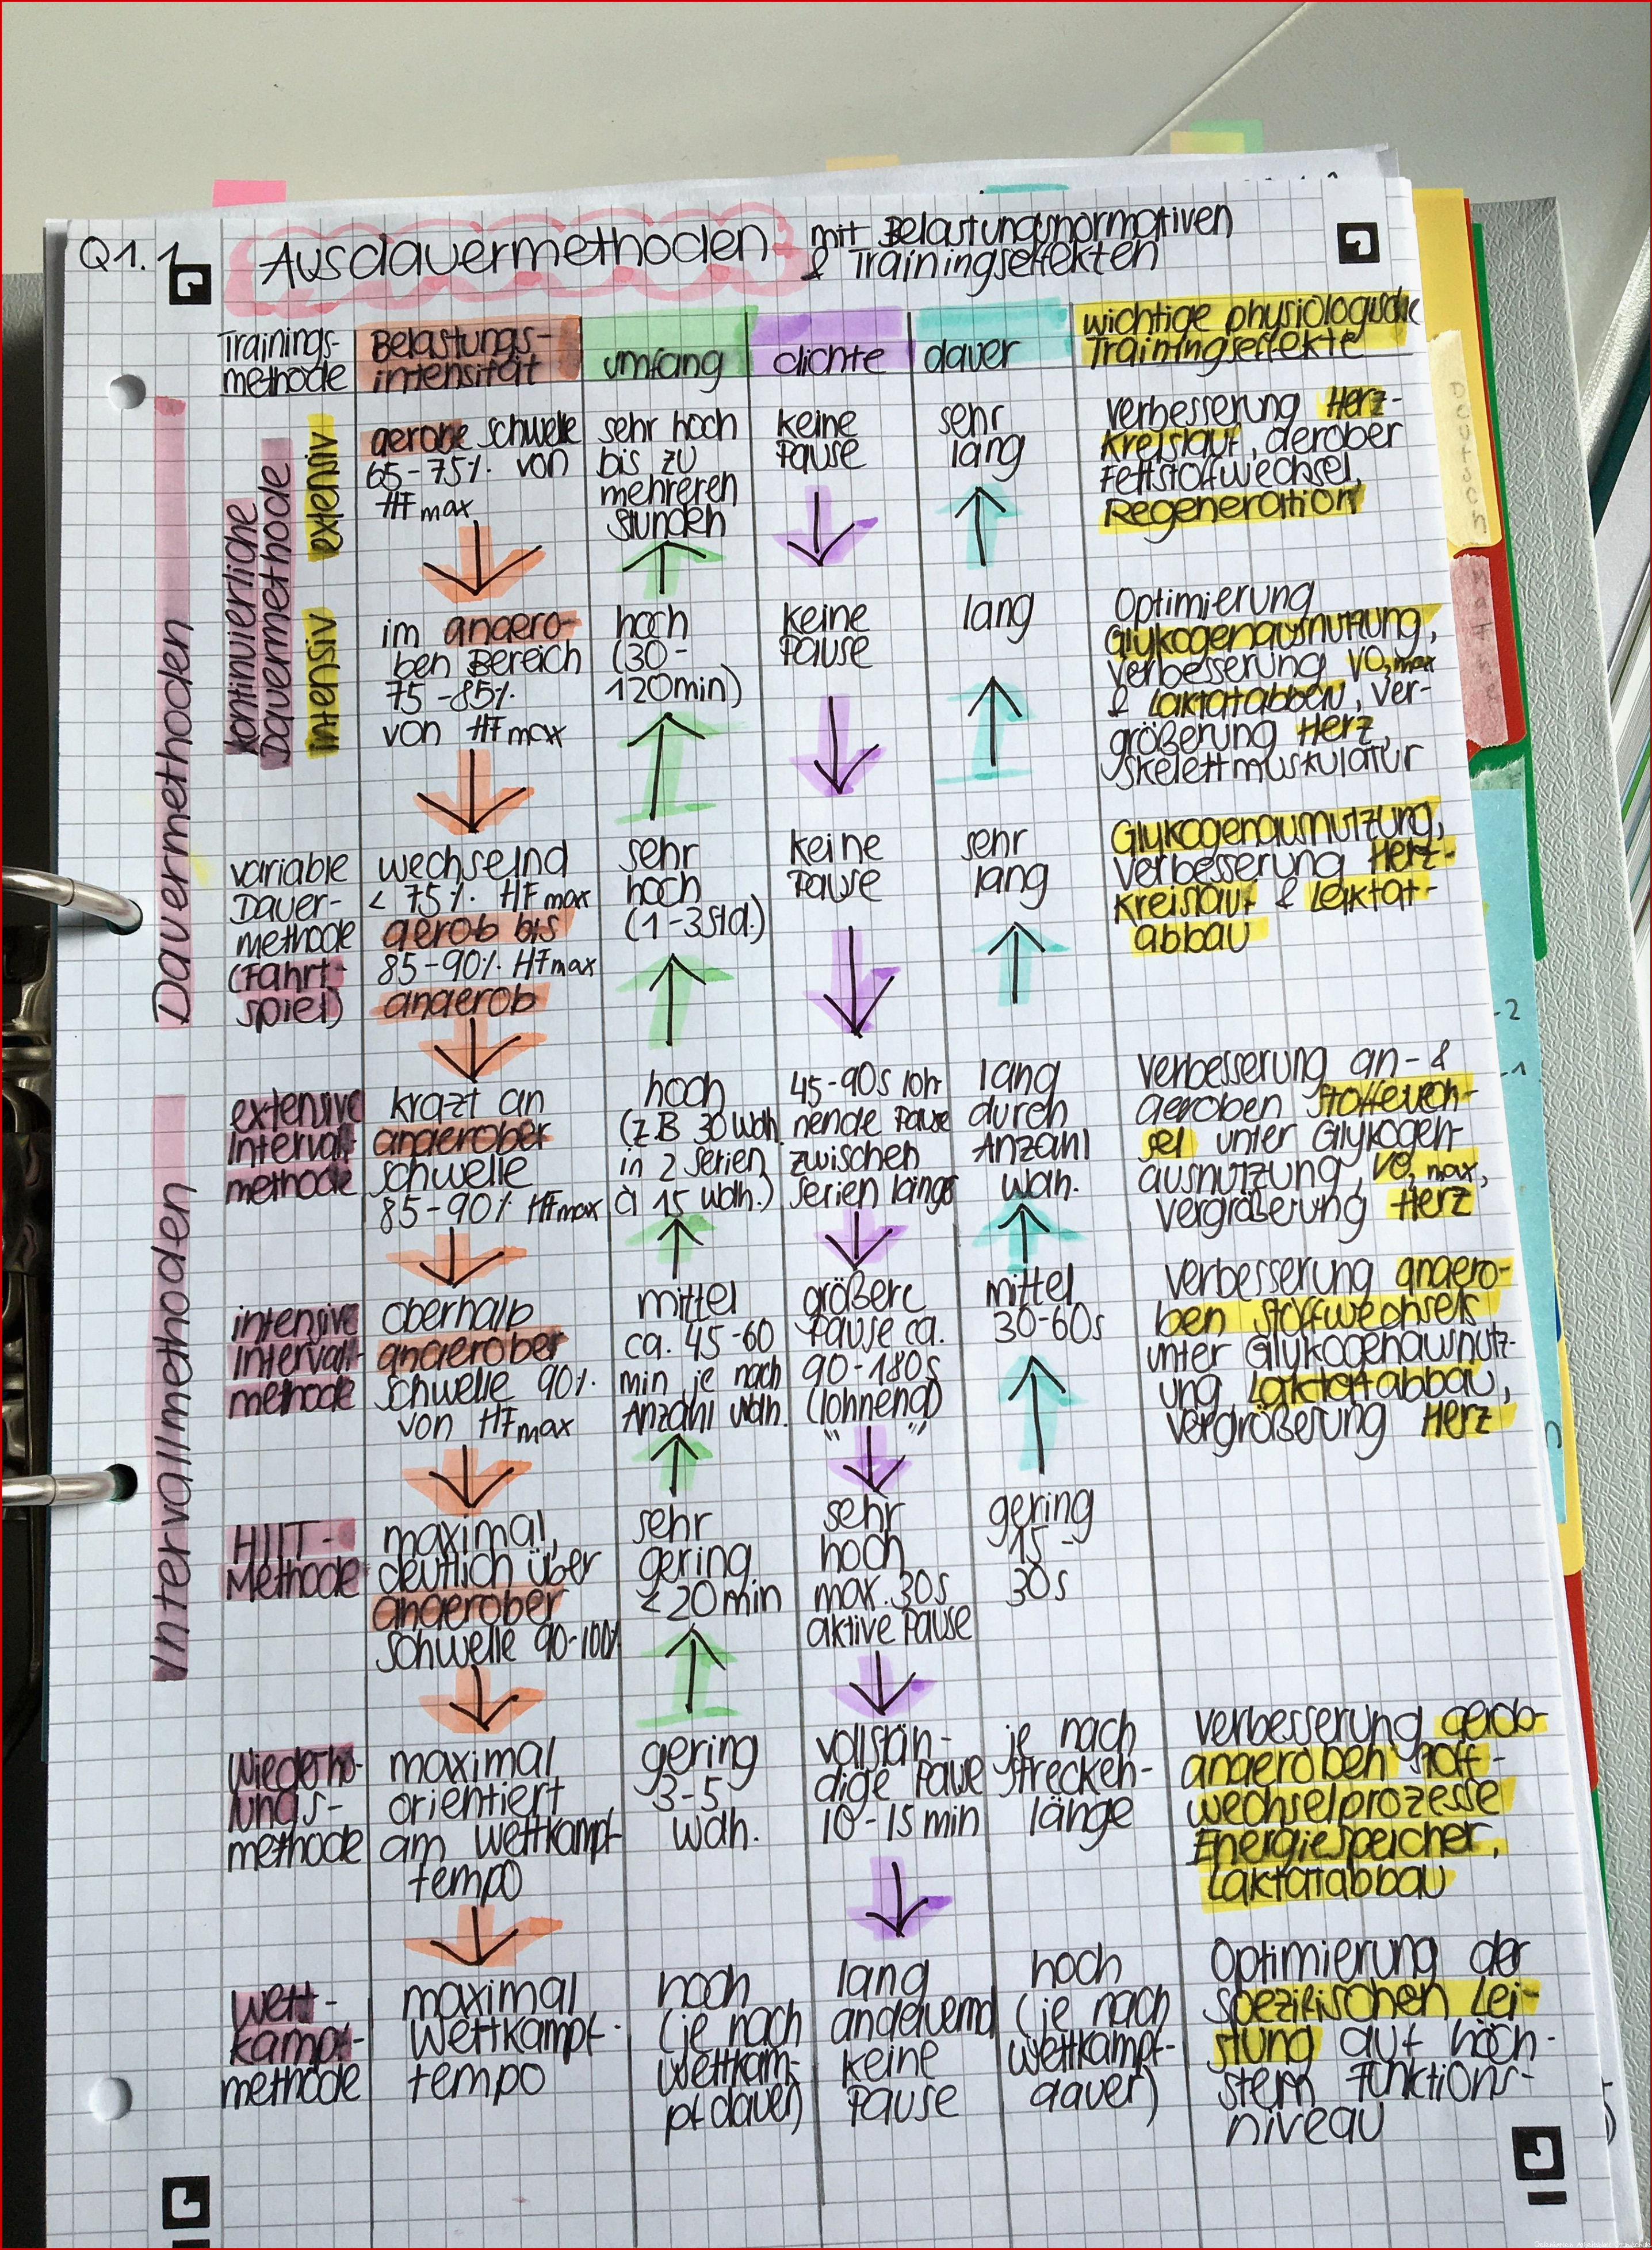 Q1.1
Ausdauermethoden mit Belastungsnormativen
& Trainingseffekten
Trainings-
methode
Belastungs-
intensität
umfang
dichte
dauer
wichtige physiologische
Trainingseffekte
Dauermethoden
kontinuierliche
Dauermethode
extensiv
aerobe Schwelle
65-75% von
HFmax
sehr hoch
bis zu
mehreren
Stunden
keine
Pause
sehr
lang
Verbesserung Herz-
Kreislauf, aerober
Fettstoffwechsel,
Regeneration
intensiv
im anaero-
ben Bereich
75-85%
von HFmax
hoch
(30-
120min)
keine
Pause
lang
Optimierung
Glykogenausnutzung,
Verbesserung VO2max
& Laktatabbau, Ver-
größerung Herz,
Skelettmuskulatur
variable
Dauer-
methode
(Fahrt-
spiel)
wechselnd
< 75% HFmax
aerob bis
85-90% HFmax
anaerob
sehr
hoch
(1-3Std.)
keine
Pause
sehr
lang
Glykogenausnutzung,
Verbesserung Herz-
Kreislauf & Laktat-
abbau
Intervallmethoden
extensive
Intervall-
methode
kratzt an
anaerober
Schwelle
85-90% HFmax
hoch
(z.B 30 Wdh.
in 2 Serien
à 15 Wdh.)
45-90s loh
nende Pause
zwischen
Serien länger
lang
durch
Anzahl
Wdh.
Verbesserung an- &
aeroben Stoffwech-
sel unter Glykogen-
ausnutzung, VO2max,
Vergrößerung Herz
intensive
Intervall-
methode
oberhalb
anaerober
Schwelle 90%
von HFmax
mittel
ca. 45-60
min je nach
Anzahl Wdh.
größere
Pause ca.
90-180s
(lohnend)
" "
mittel
30-60s
Verbesserung anaero-
ben Stoffwechsels
unter Glykogenausnutz-
ung, Laktatabbau,
Vergrößerung Herz
HIIT-
Methode
maximal,
deutlich über
anaerober
Schwelle 90-100%
sehr
gering
<20min
sehr
hoch
max. 30s
aktive Pause
gering
15-
30s
Wiederho-
lungs-
methode
maximal
orientiert
am Wettkampf-
tempo
gering
3-5
Wdh.
vollstän-
dige Pause
10-15min
je nach
Strecken-
länge
Verbesserung aerob-
anaeroben Stoff-
wechselprozesse
Energiespeicher,
Laktatabbau
Wett-
kampf-
methode
maximal
Wettkampf-
tempo
hoch
(je nach
Wettkam-
pfdauer)
lang
andauernd
keine
Pause
hoch
(je nach
Wettkampf-
dauer)
Optimierung der
spezifischen Lei-
stung auf höch-
stem Funktions-
niveau
Deutsch
Mathe
-2
-1